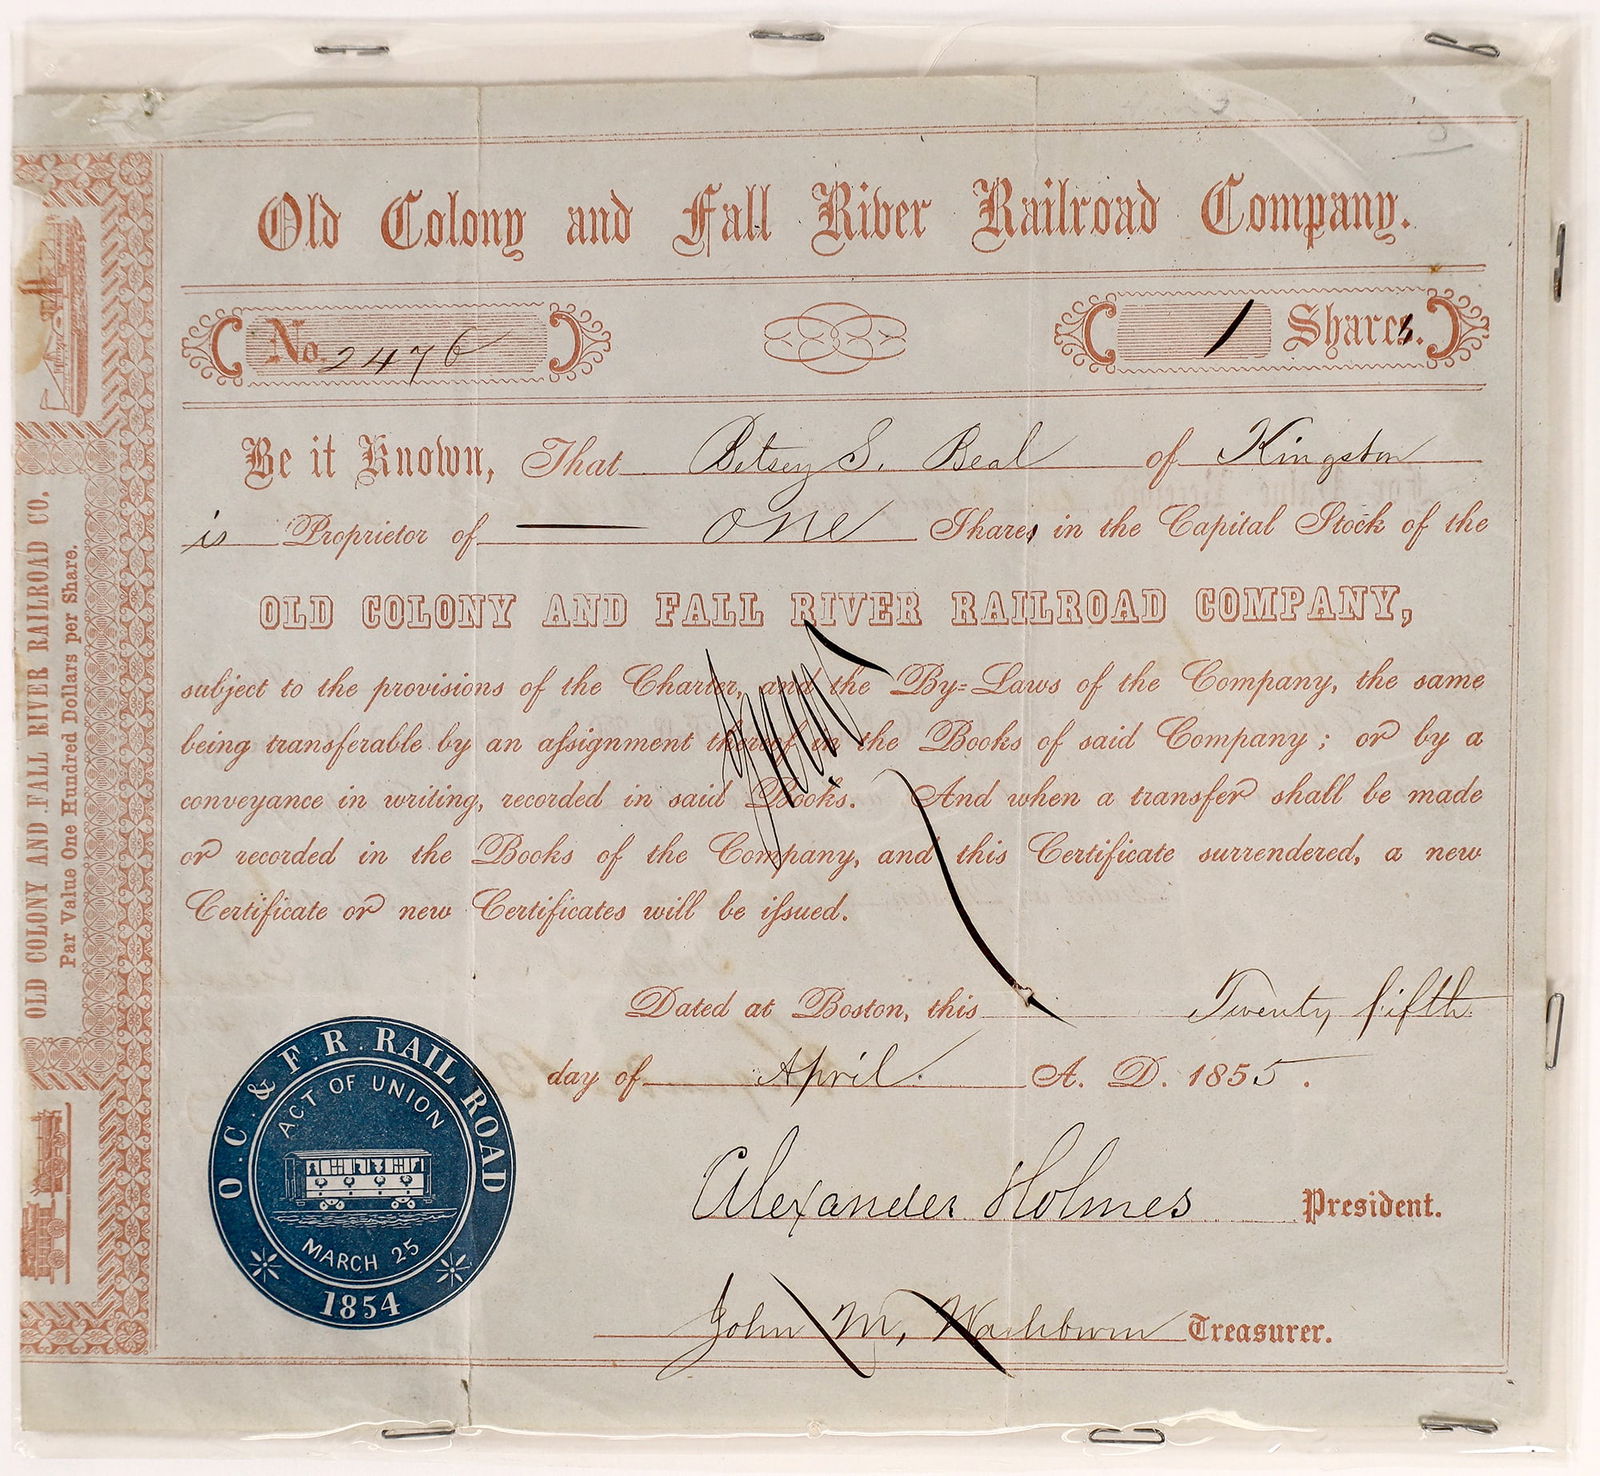 Old Colony and Fall River Railroad Company.
No. 2476
1 Shares.
Be it Known, That Betsey S. Beal of Kingston
is Proprietor of one Shares in the Capital Stock of the
OLD COLONY AND FALL RIVER RAILROAD COMPANY,
subject to the provisions of the Charter, and the By-Laws of the Company, the same
being transferable by an assignment thereof in the Books of said Company; or by a
conveyance in writing, recorded in said Books. And when a transfer shall be made
or recorded in the Books of the Company, and this Certificate surrendered, a new
Certificate or new Certificates will be issued.
Dated at Boston, this Twenty fifth
day of April. A. D. 1855.
Alexander Holmes President.
John M. Washburn Treasurer.
O. C. & F. R. RAIL ROAD
ACT OF UNION
MARCH 25
1854
OLD COLONY AND FALL RIVER RAILROAD CO.
Par Value One Hundred Dollars per Share.